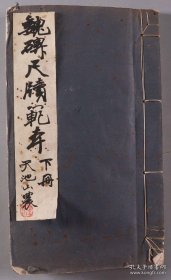 魏碑尺牘範本
下冊
天池山農